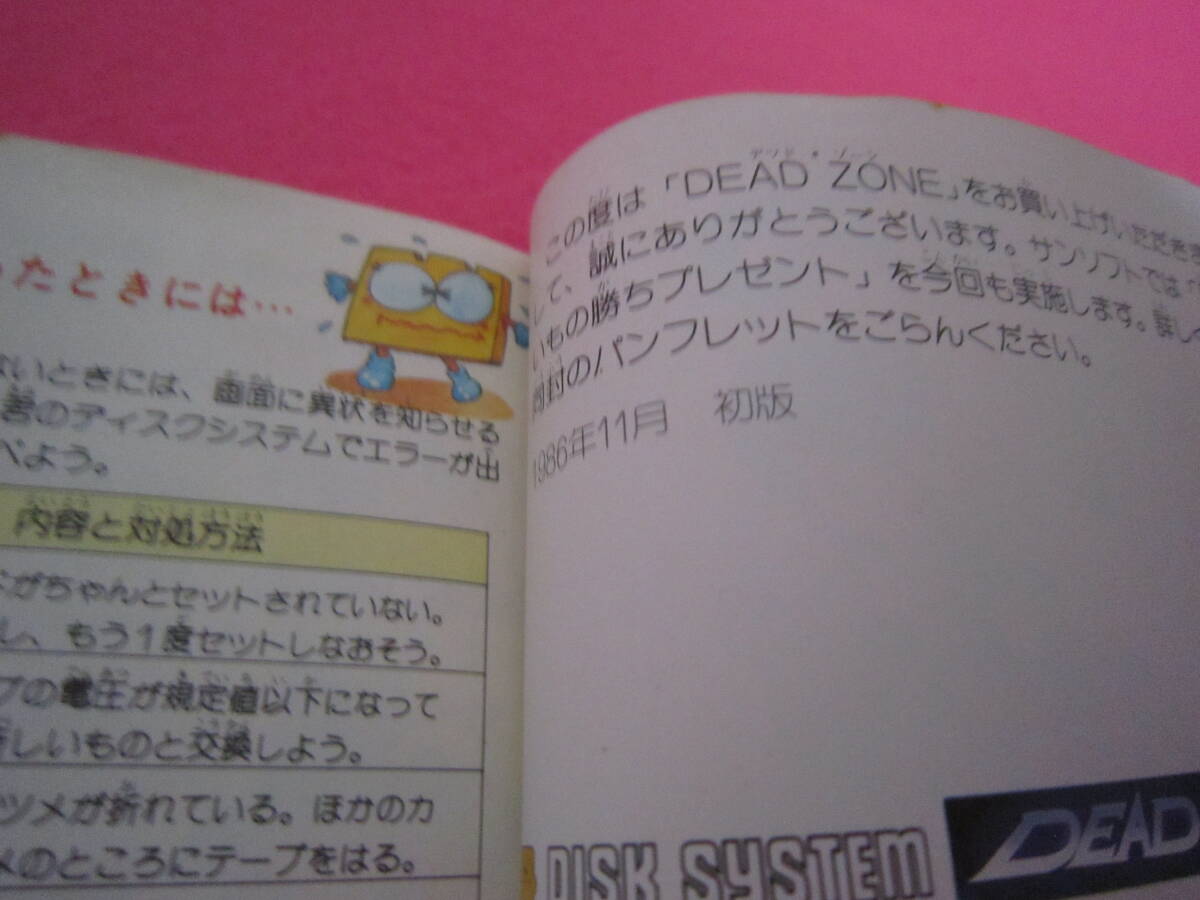 ったときには…
ないときには、画面に異状を知らせる
善のディスクシステムでエラーが出
べよう。
内容と対処方法
がちゃんとセットされていない。
し、もう1度セットしなおそう。
プの電圧が規定値以下になって
新しいものと交換しよう。
ツメが折れている。ほかのカ
メのところにテープをはる。
デッド・ゾーン
この度は「DEAD ZONE」をお買い上げいただきま
して、誠にありがとうございます。サンソフトでは「
いもの勝ちプレゼント」を今回も実施します。詳しく
同封のパンフレットをごらんください。
1986年11月 初版
DISK SYSTEM
DEAD